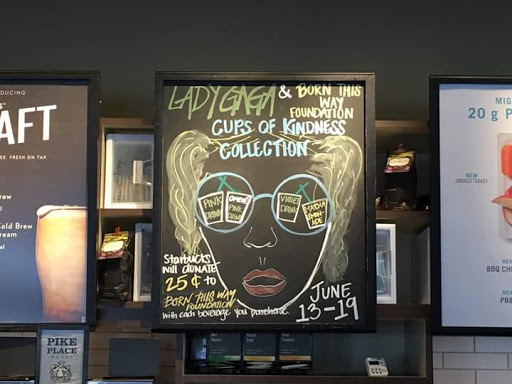 DUCING
AFT
EE. FRESH ON TAP.
rew
Cold Brew
ream
al
LADY GAGA & BORN THIS
WAY
FOUNDATION
CUPS OF KINDNESS
COLLECTION
PINK
DRINK
OMBRE
PINK
DRINK
VIOLET
DRINK
MATCHA
LEMON-
ADE
STARBUCKS
WILL DONATE
25¢ to
BORN THIS WAY
FOUNDATION
with each beverage you purchase.
JUNE
13-19
PIKE
PLACE
ROAST
MIG
20 g P
NEW
SMOKED TURKEY
NEW
BBQ CHI
NEW
PB&